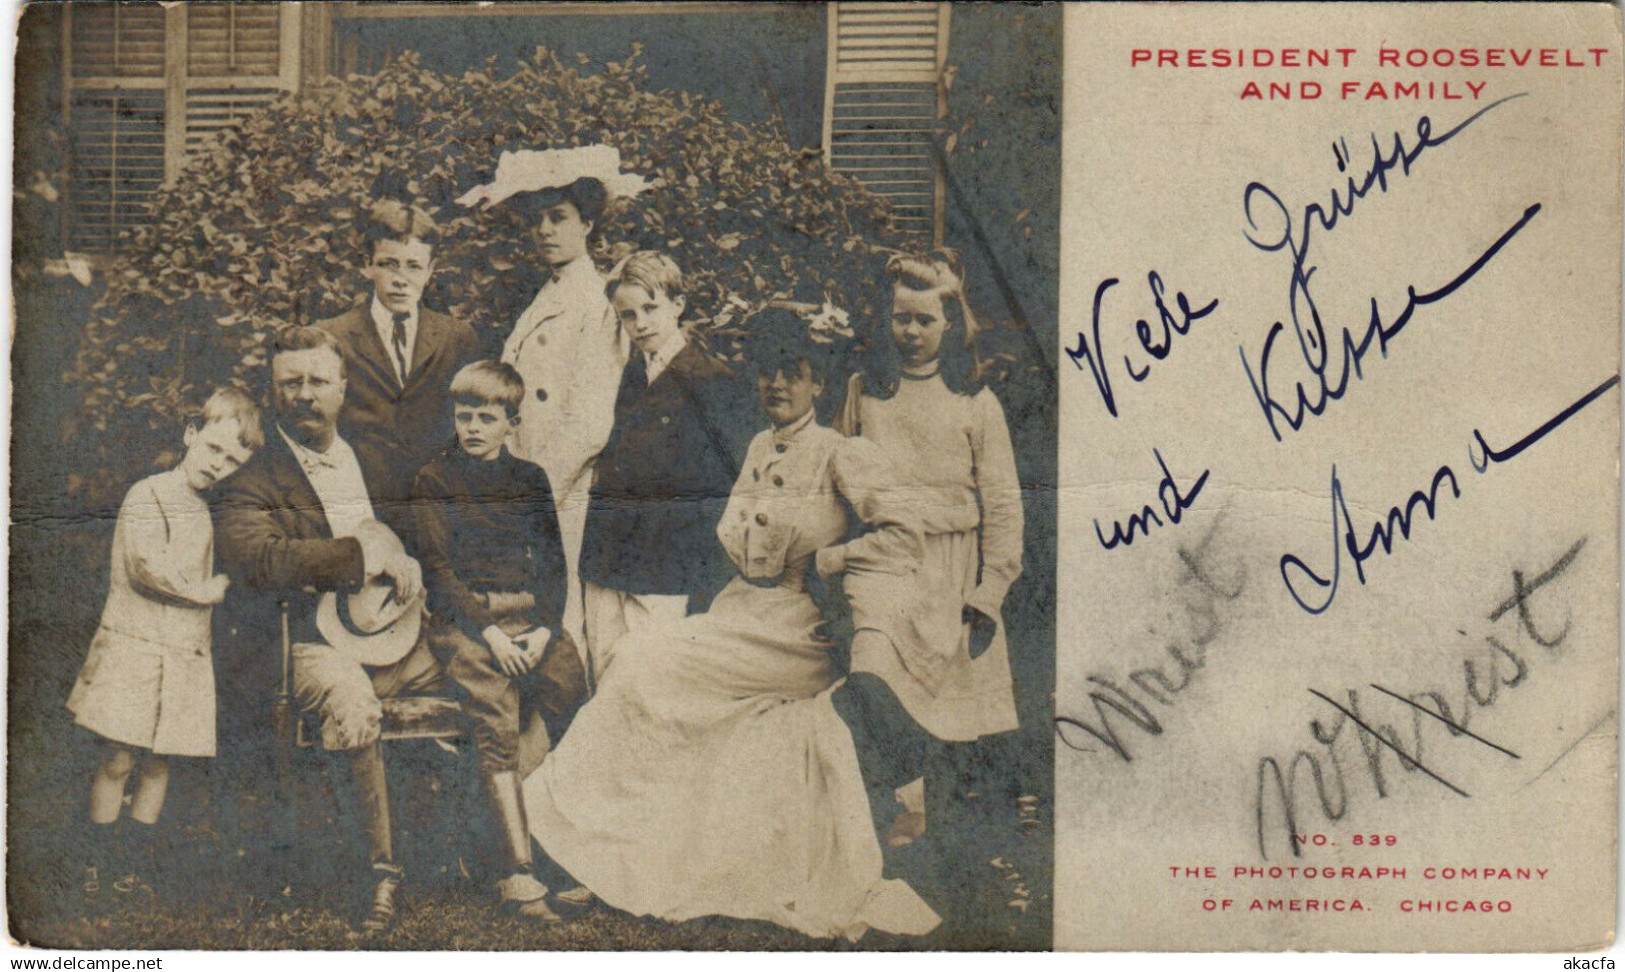 PRESIDENT ROOSEVELT
AND FAMILY
Viele Grüsse
und Küsse
Anna
Wrist
Whrist
NO. 839
THE PHOTOGRAPH COMPANY
OF AMERICA. CHICAGO
akacfa